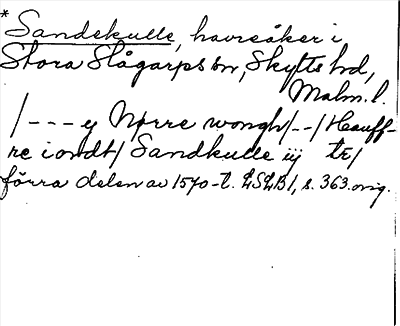 * Sandekulle, havreåker i
Stora Slågarps sn, Skytts hd,
Malm. l.
/--- y Nørre wongh/--/Hauff-
re iordt/ Sandkulle iij tr/
förra delen av 1570-t. LSLB1, s. 363. orig.